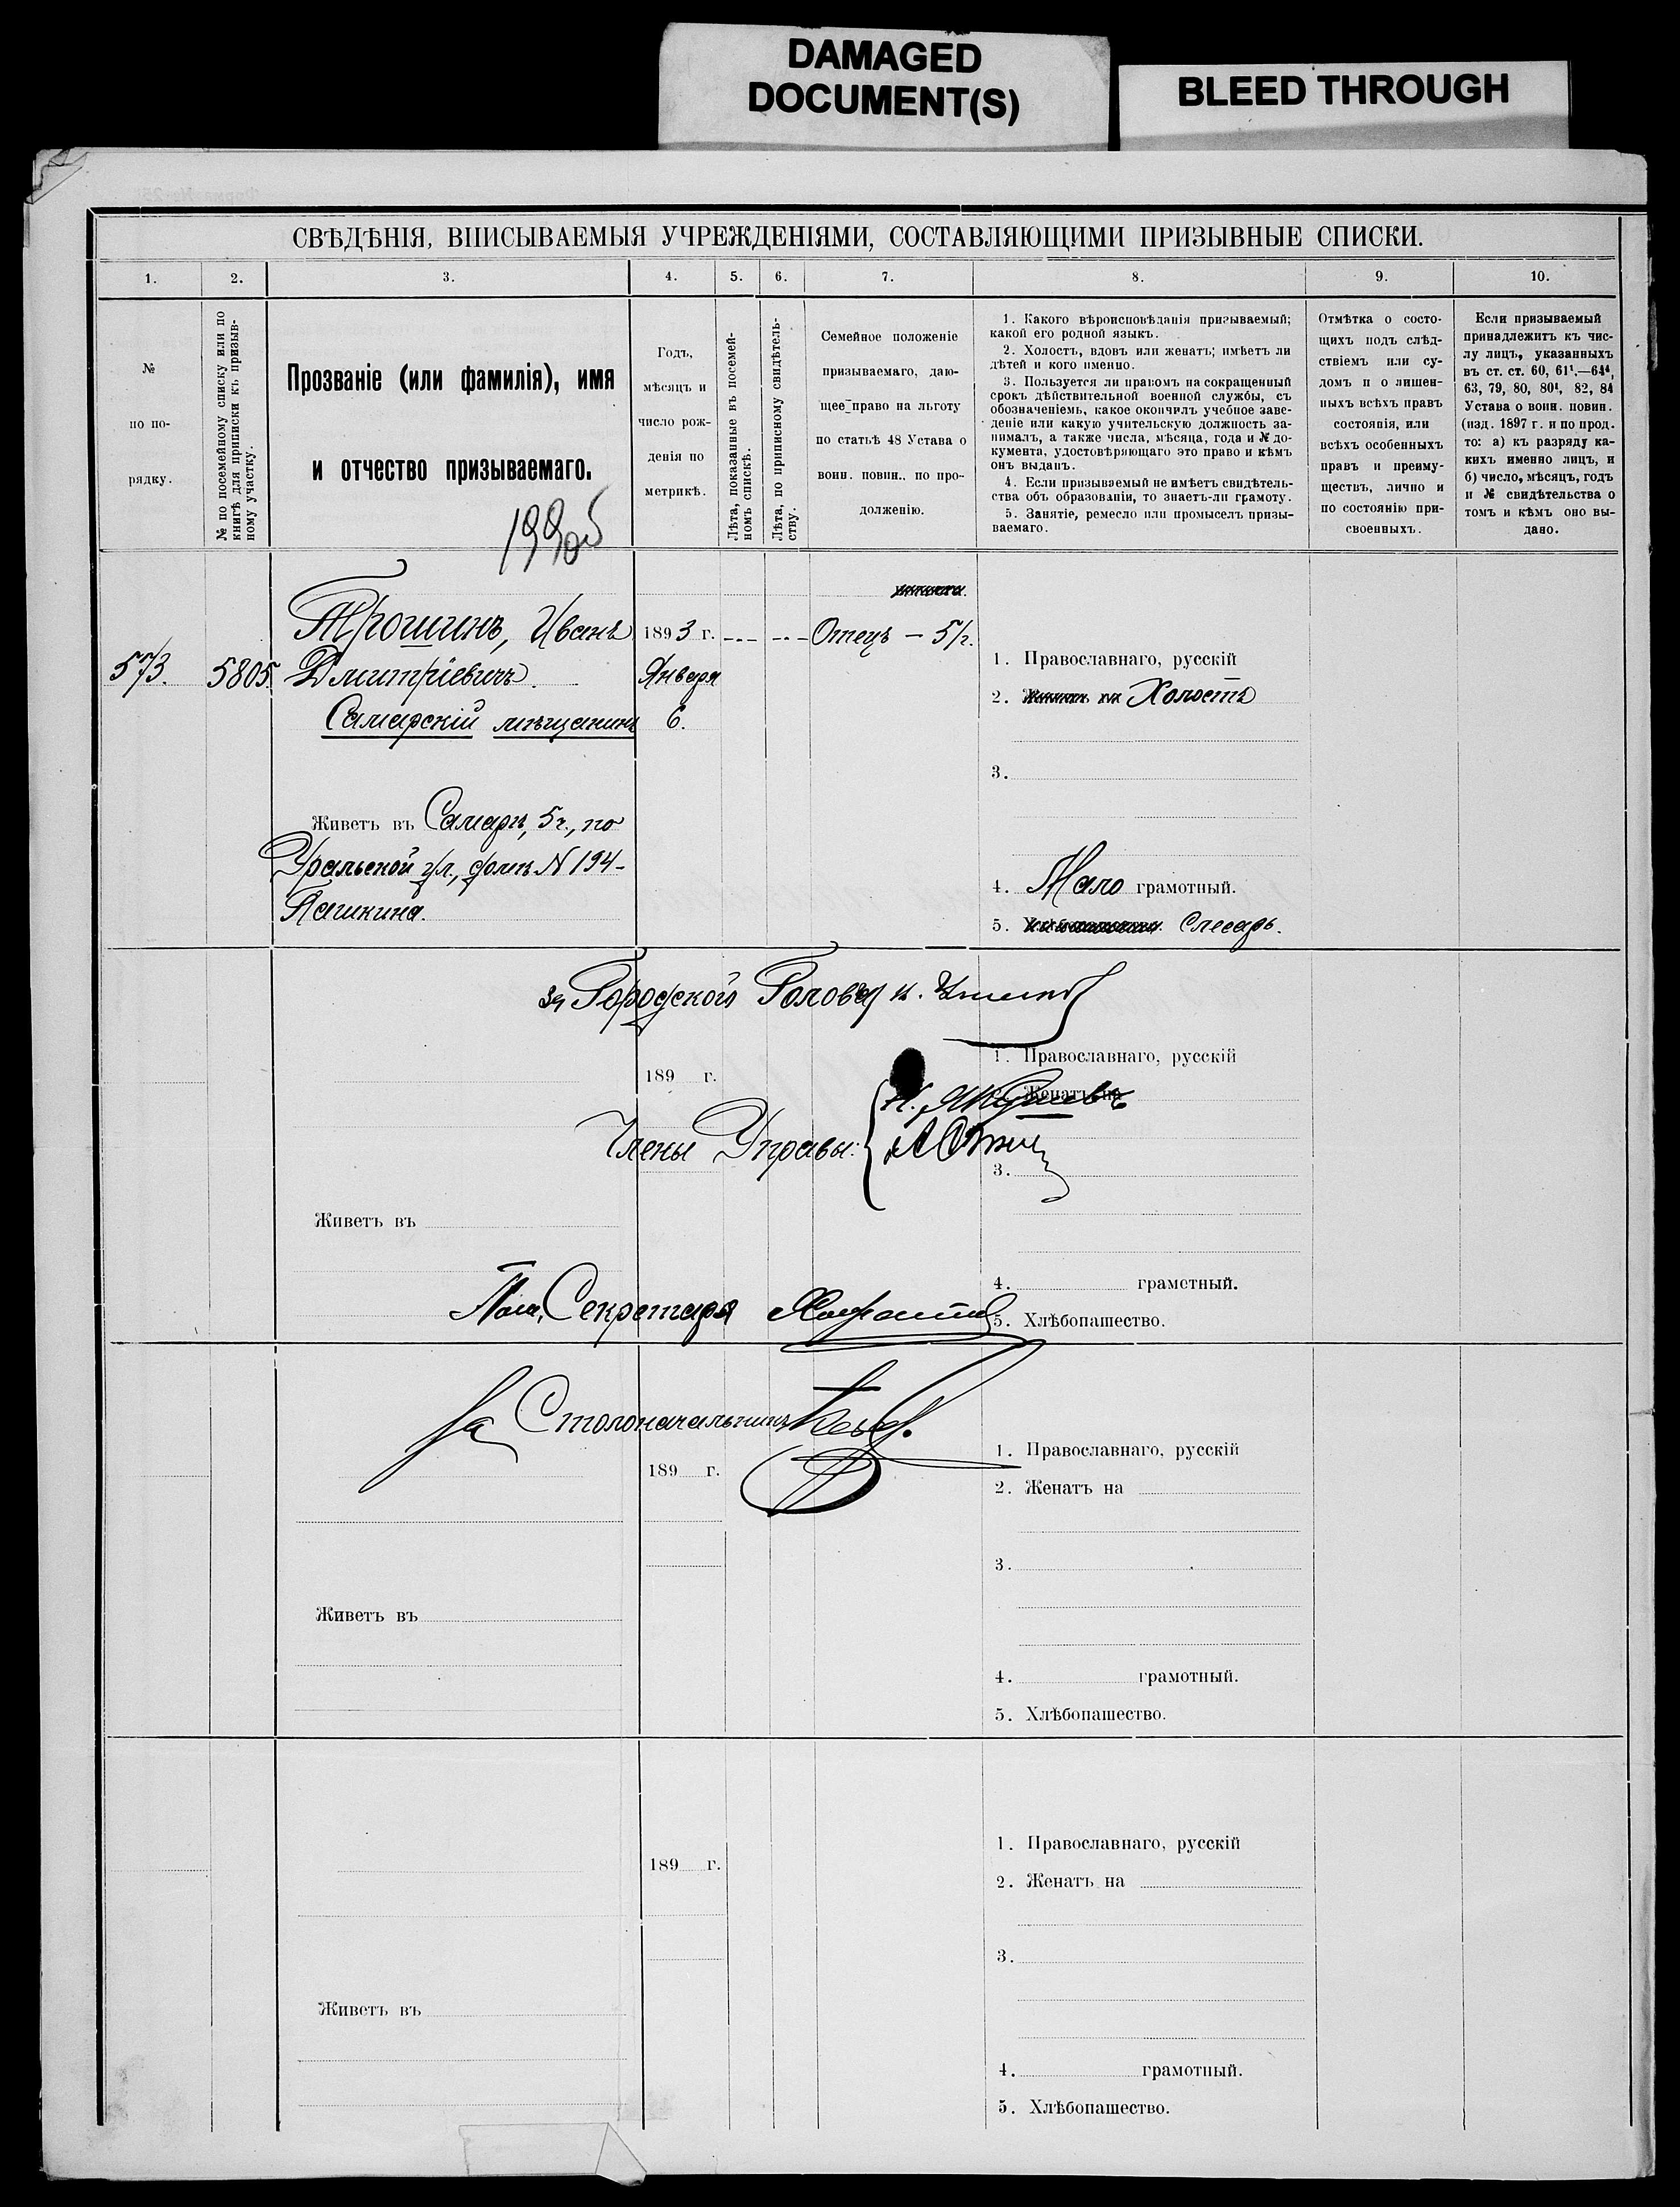 DAMAGED
DOCUMENT(S)
BLEED THROUGH
СВѢДѢНІЯ, ВПИСЫВАЕМЫЯ УЧРЕЖДЕНІЯМИ, СОСТАВЛЯЮЩИМИ ПРИЗЫВНЫЕ СПИСКИ.
1. 2. 3. 4. 5. 6. 7. 8. 9. 10.
№
по по-
рядку.
№ по посемейному списку или по
книгѣ для приписки къ призыв-
ному участку.
Прозваніе (или фамилія), имя
и отчество призываемаго.
Годъ,
мѣсяцъ и
число рож-
денія по
метрикѣ.
Лѣта, показанные въ посемей-
номъ спискѣ.
Лѣта, по приписному свидѣтель-
ству.
Семейное положеніе
призываемаго, даю-
щее право на льготу
по статьѣ 48 Устава о
воин. повин., по про-
долженію.
1. Какого вѣроисповѣданія призываемый;
какой его родной языкъ.
2. Холостъ, вдовъ или женатъ; имѣетъ ли
дѣтей и кого именно.
3. Пользуется ли правомъ на сокращенный
срокъ дѣйствительной военной службы, съ
обозначеніемъ, какое окончилъ учебное заве-
деніе или какую учительскую должность за-
нималъ, а также числа, мѣсяца, года и № до-
кумента, удостовѣряющаго это право и кѣмъ
онъ выданъ.
4. Если призываемый не имѣетъ свидѣтель-
ства объ образованіи, то знаетъ-ли грамоту.
5. Занятіе, ремесло или промыселъ призы-
ваемаго.
Отмѣтка о состо-
щихъ подъ слѣд-
ствіемъ или су-
домъ и о лишен-
ныхъ всѣхъ правъ
состоянія, или
всѣхъ особенныхъ
правъ и преиму-
ществъ, лично и
по состоянію при-
своенныхъ.
Если призываемый
принадлежитъ къ чис-
лу лицъ, указанныхъ
въ ст. ст. 60, 61¹,—64⁴,
63, 79, 80, 80¹, 82, 84
Устава о воин. повин.
(изд. 1897 г. и по прод.
то: а) къ разряду ка-
кихъ именно лицъ, и
б) число, мѣсяцъ, годъ
и № свидѣтельства о
томъ и кѣмъ оно вы-
дано.
Трошинъ, Иванъ 1893 г. Отецъ – 51 г.
573. 5805. Дмитріевичъ. Января
Самарскій мѣщанинъ 6.
1. Православнаго, русскій
2. Холостъ
3.
Живетъ въ Самарѣ, 5 ч., по
Уральской ул., домъ N 194 –
Пашкина.
4. Мало грамотный.
5. Слесарь.
За Городского Голову
1. Православнаго, русскій
189 г.
2. Женатъ на
Члены Управы:
3.
Живетъ въ
4. грамотный.
Пом. Секретаря
5. Хлѣбопашество.
За Столоначальника
1. Православнаго, русскій
189 г.
2. Женатъ на
3.
Живетъ въ
4. грамотный.
5. Хлѣбопашество.
1. Православнаго, русскій
189 г.
2. Женатъ на
3.
Живетъ въ
4. грамотный.
5. Хлѣбопашество.